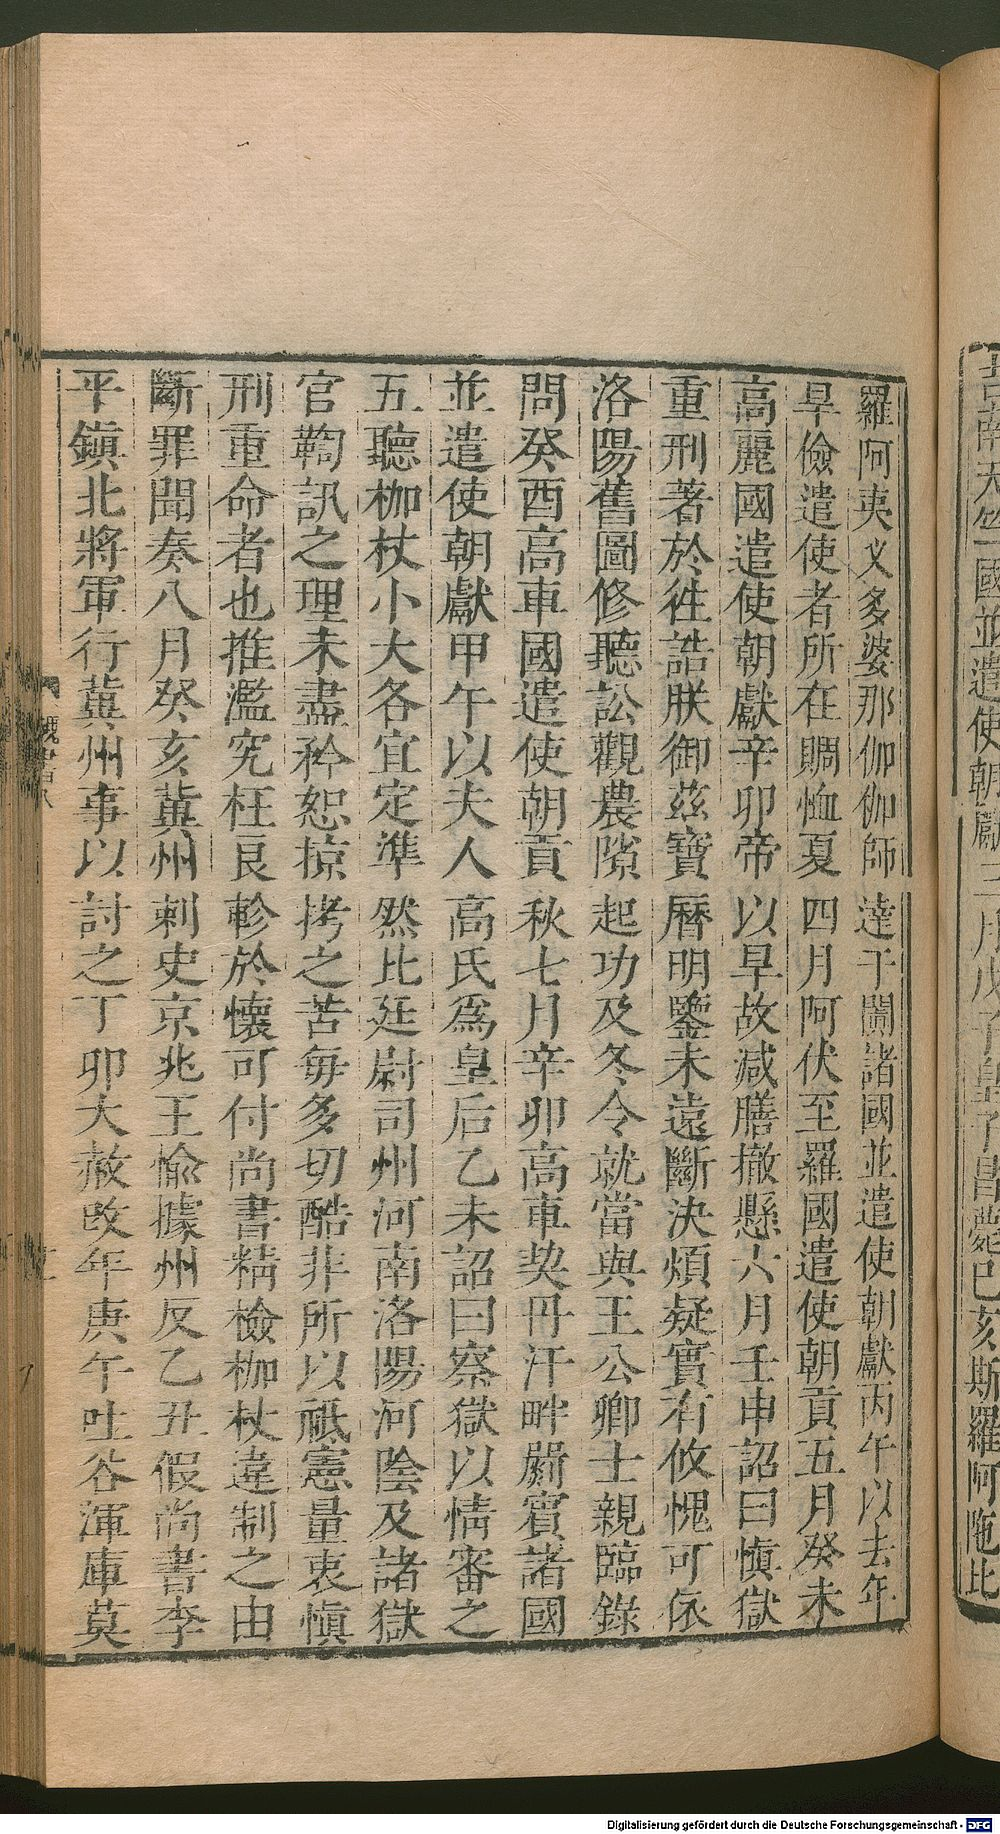 羅阿夷义多婆那伽伽師達于闐諸國並遣使朝獻丙午以去年
旱儉遣使者所在賙恤夏四月阿伏至羅國遣使朝貢五月癸未
高麗國遣使朝獻辛卯帝以旱故減膳撤懸六月壬申詔曰慎獄
重刑著於徃誥朕御茲寶曆明鑒未遠斷決煩疑實有攸愧可依
洛陽舊圖修聽訟觀農隙起功及冬令就當與王公卿士親臨錄
問癸酉高車國遣使朝貢秋七月辛卯高車契丹汗畔罽賓諸國
並遣使朝獻甲午以夫人高氏爲皇后乙未詔曰察獄以情審之
五聽枷杖小大各宜定準然比廷尉司州河南洛陽河陰及諸獄
官鞫訊之理未盡矜恕掠拷之苦每多切酷非所以祗憲量衷慎
刑重命者也推濫究枉良軫於懷可付尚書精檢枷杖違制之由
斷罪聞奏八月癸亥冀州刺史京兆王愉據州反乙丑假尚書李
平鎮北將軍行冀州事以討之丁卯大赦改年庚午吐谷渾庫莫
南天竺國並遣使朝獻三月戊子皇子昌薨己亥斯羅阿陁比
Digitalisierung gefördert durch die Deutsche Forschungsgemeinschaft - DFG